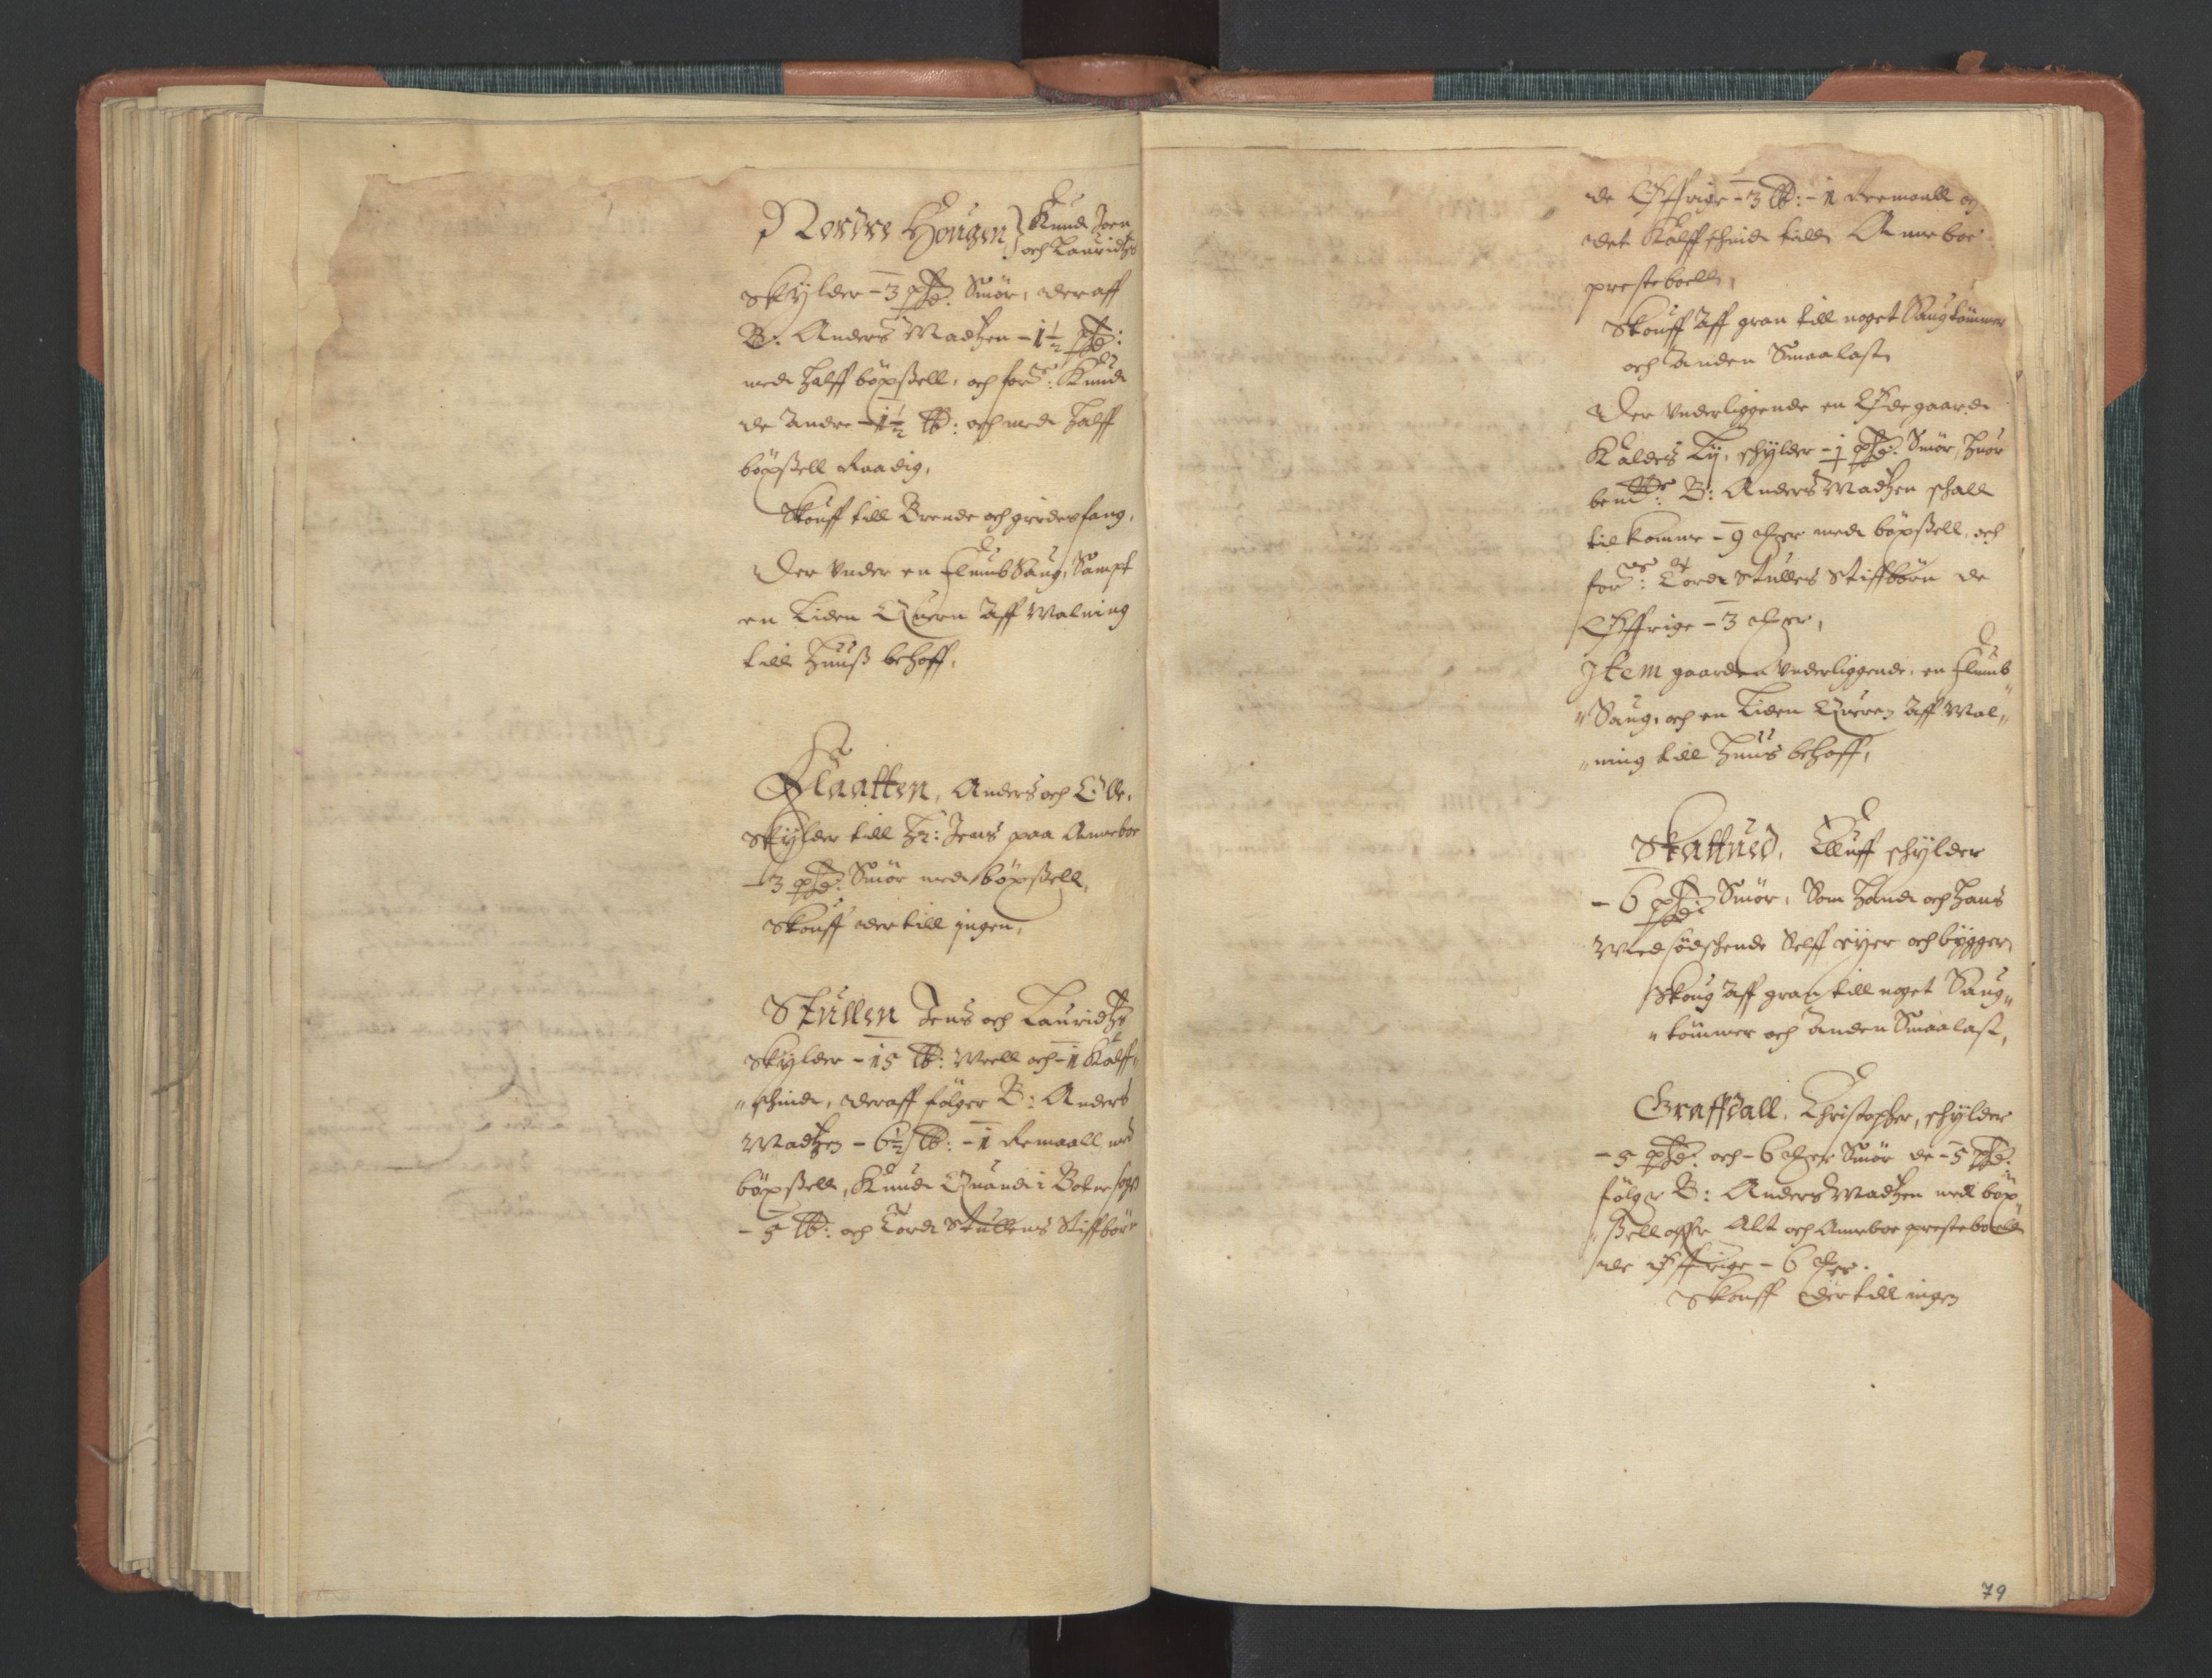 Nordre Hougen } Knud Joen
och Lauridtz
Skÿlder - 3 pd: Smör, deraff
B: Anders Madtzen - 1½ pd:
med halff böxssell, och forde: Knud
de andre - 1½ ℔: och med halff
böxssell Raadig,
Skouff till Brende och gierdesfang,
Der under en flomb Saug, Sampt
en Liden Quern aff Malning
till Huuss behoff,
Flaatten, Anders och Olle,
Skÿlder till Hr: Jens paa Anneboe
- 3 pd: Smör med böxssell,
Skouff dertill jngen,
Stullen Jens och Lauridtz
Skÿlder - 15 ℔: Mell och - 1 Kalff„
„schind, deraff fölger B: Anders
Madtzen - 6½ ℔: - 1 Remaall med
böxssell, Knud Quande i Botne sogn
- 5 ℔: och Tord Stullens Stiffbörn
de Öffrige - 3 ℔: - 1 Reemaall og
det Kalffschind till Anneboe
presteboell,
Skouff aff gran till noget Saugtömmer
och anden Smaalast,
Der underliggende en Ödegaard
Kaldes Lÿ, schÿlder - 1 pd: Smör, huor
bemte: B: Anders Madtzen schall
tilkomme - 9 mer med böxssell, och
forde: Tord Stulles Stiffbörn de
Öffrige - 3 mer,
Item gaarden underliggende, en flomb
„Saug, och en Liden Quern aff Mal„
„ning till Huus behoff,
Skattued, Elluff schÿlder
- 6 pd: Smör, Som hand och hans
Medsödschende Selff eÿer och bÿgger,
Skoug aff gran till noget Saug„
„tömmer och anden Smaalast,
Graffdall, Christopher, schÿlder
- 5 pd: och - 6 mer Smör de - 5 pd:
fölger B: Anders Madtzen med böx„
„ssell offr Alt och Anneboe presteboell
de öffrige - 6 mer.
Skouff dertill ingen
79